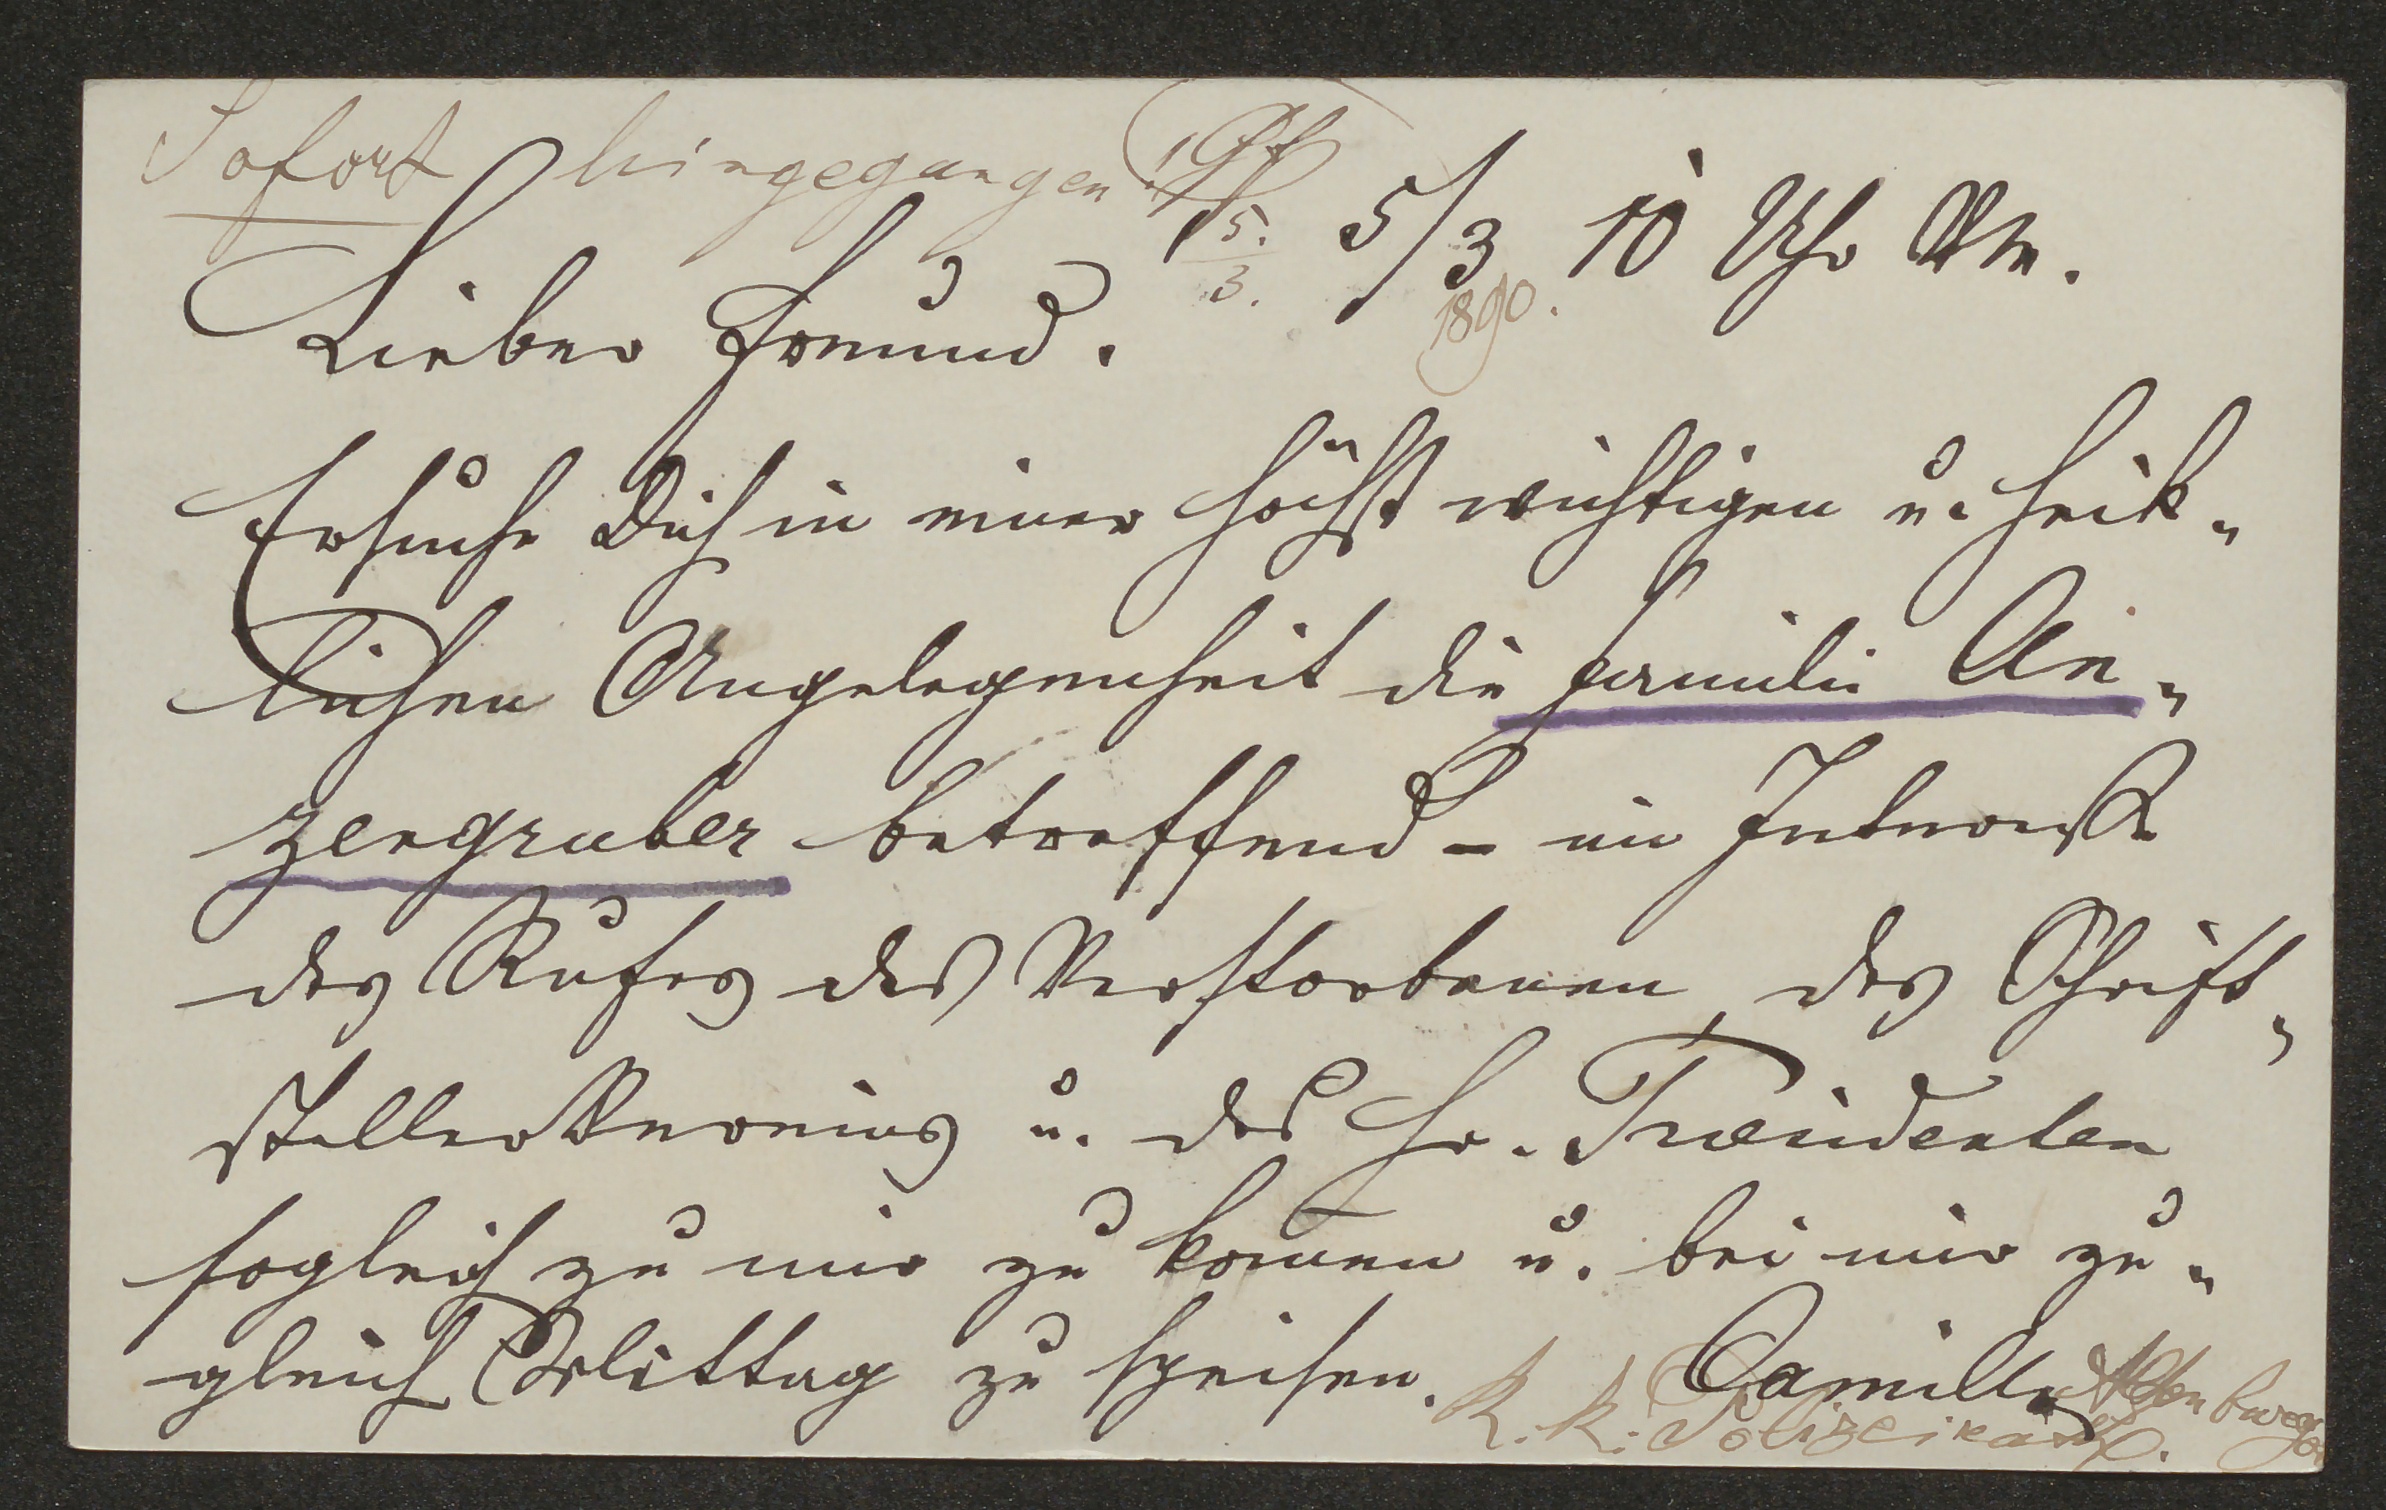 Sofort hingegangen!
5.
3.
5/3 10 Uhr Vm.
1890.
Lieber Freund.
Ersuche Dich in einer höchst wichtigen u. heik-
lichen Angelegenheit die Familie An-
zengruber betreffend – im Interesse
des Rufes des Verstorbenen, des Schrift-
stellerVereins u. des Hr. Präsidenten
sogleich zu mir zu komen u. bei mir zu-
gleich Mittag zu speisen.
Camill
K. k. Polizeirath.